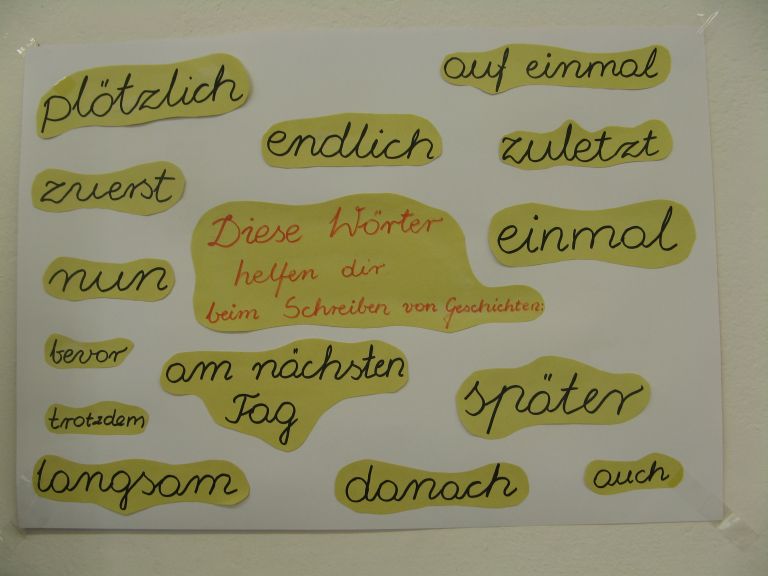 plötzlich
auf einmal
endlich
zuletzt
zuerst
Diese Wörter
helfen dir
beim Schreiben von Geschichten:
einmal
nun
bevor
am nächsten
Tag
später
trotzdem
langsam
danach
auch